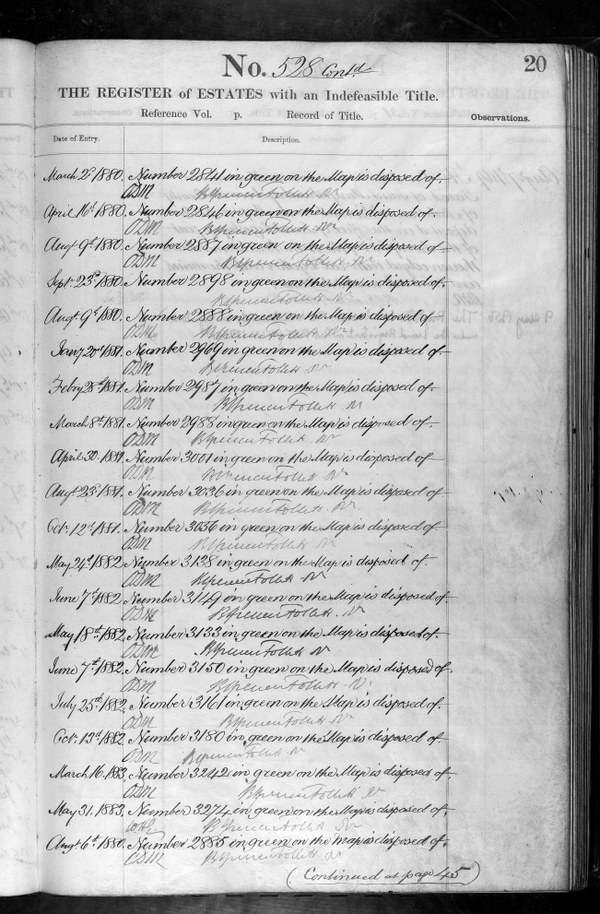 No. 528 Contd.
20
THE REGISTER of ESTATES with an Indefeasible Title.
Reference Vol. p. Record of Title.
Observations.
Date of Entry.
Description.
March 2d 1880. Number 2841 in green on the Map is disposed of.
ODM BSpencer Follett Rr
April 16th 1880. Number 2846 in green on the Map is disposed of
ODM BSpencer Follett Rr
Augt 9th 1880. Number 2887 in green on the Map is disposed of
ODM BSpencer Follett Rr
Sept. 23d 1880. Number 2898 in green on the Map is disposed of.
BSpencer Follett Rr
Augt 9th 1880. Number 2888 in green on the Map is disposed of
ODM BSpencer Follett Rr
Jany 20th 1881. Number 2969 in green on the Map is disposed of.
ODM BSpencer Follett Rr
Feby 28th 1881. Number 2987 in green on the Map is disposed of
ODM BSpencer Follett Rr
March 8th 1881. Number 2988 in green on the Map is disposed of.
ODM BSpencer Follett Rr
April 30. 1881. Number 3001 in green on the Map is disposed of
ODM BSpencer Follett Rr
Augt 23d 1881. Number 3036 in green on the Map is disposed of
ODM BSpencer Follett Rr
Oct. 12th 1881. Number 3056 in green on the Map is disposed of
ODM BSpencer Follett Rr
May 24th 1882 Number 3138 in green on the Map is disposed of
ODM BSpencer Follett Rr
June 7th 1882. Number 3149 in green on the Map is disposed of
ODM BSpencer Follett Rr
May 18th 1882. Number 3133 in green on the Map is disposed of.
ODM BSpencer Follett Rr
June 7th 1882. Number 3150 in green on the Map is disposed of
ODM BSpencer Follett Rr
July 25th 1882. Number 3161 in green on the Map is disposed of
ODM BSpencer Follett Rr
Oct. 13th 1882 Number 3180 in green on the Map is disposed of
ODM BSpencer Follett Rr
March 16. 1883, Number 3242 in green on the Map is disposed of
ODM BSpencer Follett Rr
May 31. 1883. Number 3274 in green on the Map is disposed of
BSpencer Follett Rr
Augt 6th 1880. Number 2885 in green on the map is disposed of
ODM BSpencer Follett Rr
(Continued at page 45)